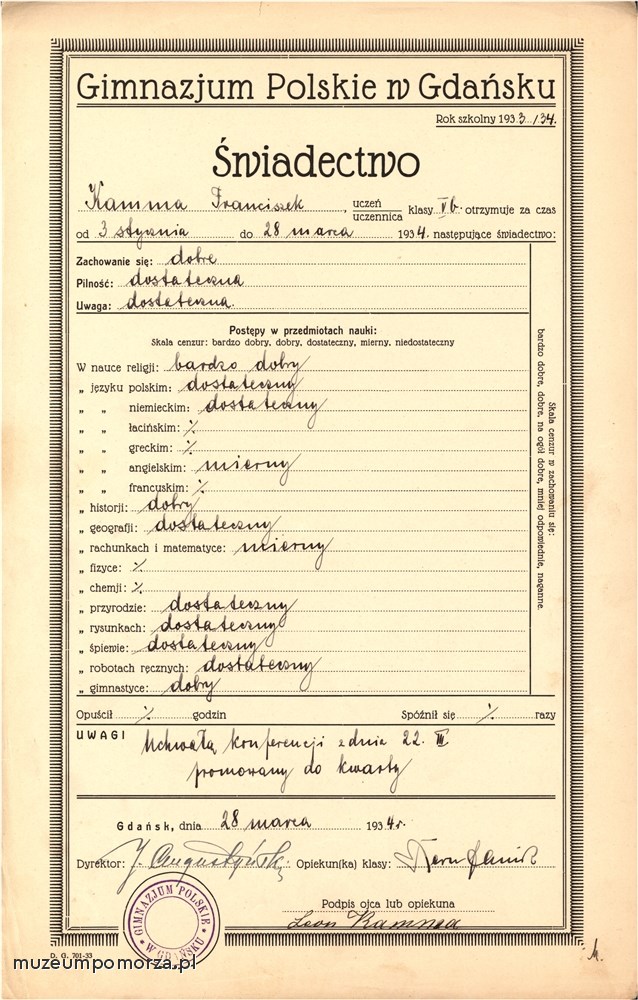 Gimnazjum Polskie w Gdańsku
Rok szkolny 1933/34.
Świadectwo
Kamma Franciszek, uczeń uczennica klasy Vb. otrzymuje za czas
od 3 stycznia do 28 marca 1934. następujące świadectwo:
Zachowanie się: dobre
Pilność: dostateczna
Uwaga: dostateczna.
Postępy w przedmiotach nauki:
Skala cenzur: bardzo dobry, dobry, dostateczny, mierny, niedostateczny
W nauce religji: bardzo dobry
„ języku polskim: dostateczny
„ „ niemieckim: dostateczny
„ „ łacińskim: ⁒
„ „ greckim: ⁒
„ „ angielskim: mierny
„ „ francuskim: ⁒
„ historji: dobry
„ geografji: dostateczny
„ rachunkach i matematyce: mierny
„ fizyce: ⁒
„ chemji: ⁒
„ przyrodzie: dostateczny
„ rysunkach: dostateczny
„ śpiewie: dostateczny
„ robotach ręcznych: dostateczny
„ gimnastyce: dobry
Skala cenzur w zachowaniu się:
bardzo dobre, dobre, na ogół dobre, mniej odpowiednie, naganne.
Opuścił ⁒ godzin Spóźnił się ⁒ razy
UWAGI Uchwałą konferencji z dnia 22. III
promowany do kwarty
Gdańsk, dnia 28 marca 1934r.
Dyrektor: J. Augustyński Opiekun(ka) klasy:
Podpis ojca lub opiekuna
Leon Kamma
GIMNAZJUM POLSKIE
W GDAŃSKU
D. G. 701-33
muzeumpomorza.pl